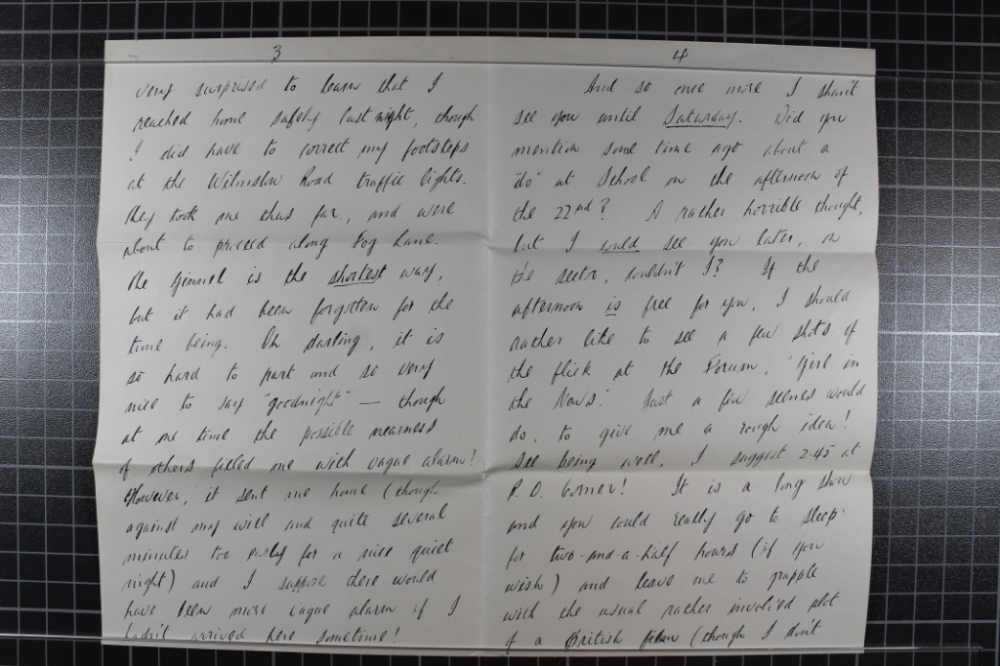 3
very surprised to learn that I
reached home safely last night, though
I did have to correct my footsteps
at the Wilmslow Road traffic lights.
They took me thus far, and were
about to proceed along Fog Lane.
The Ginnel is the shortest way,
but it had been forgotten for the
time being. Oh darling, it is
so hard to part and so very
nice to say "goodnight" — though
at one time the possible nearness
of others filled me with vague alarm!
However, it sent me home (though
against my will and quite several
minutes too early for a nice quiet
night) and I suppose there would
have been more vague alarm if I
hadn't arrived here sometime!
4
And so once more I shan't
see you until Saturday. Did you
mention some time ago about a
"do" at School on the afternoon of
the 22nd? A rather horrible thought,
but I could see you later, on
the sector, couldn't I? If the
afternoon is free for you, I should
rather like to see a few shots of
the flick at the Forum, "Girl in
the News." Just a few scenes would
do, to give me a rough idea!
All being well, I suggest 2.45 at
P.D. Corner! It is a long show
and you could really go to sleep
for two-and-a-half hours (if you
wish) and leave me to grapple
with the usual rather involved plot
of a British film (though I don't